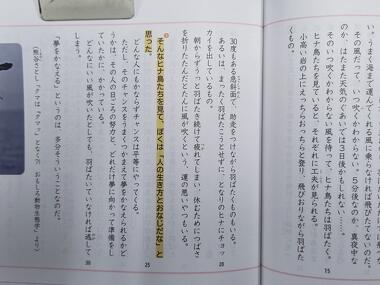 い。うまく海まで運んでくれる風に乗らなければ飛びたてないのだ。
その風だって、いつ吹くかわからない。5分後なのか、真夜中な
のか、はたまた天気のぐあいでは3日後かもしれない……。
そのいつ吹くかわからない風を待って、ヒナ鳥たちは羽ばたく。
ヒナ鳥たちを見ていると、それぞれに工夫が見られる。
小高い岩の上にえっちらおっちらと登り、飛びおりながら羽ばた
くもの。
15
30度もある急斜面で、助走をつけながら羽ばたくものもいる。
あるいは、まったく羽ばたこうとせずに、となりのヒナにチョッ
カイを出しているもの。
朝からずうっと羽ばたき続けて疲れてしまい、休むためにつばさ
を折りたたんだとたんに風が吹くという、運の悪いやつもいる。
20
そんなヒナ鳥たちを見て、ぼくは「人の生き方とおなじだな」と
思った。
どんな人にもかならずチャンスは平等にやってくる。
ただし、そのチャンスをうまくつかまえて夢をかなえられるかど
うかは、その人の日ごろの努力と、どれだけ夢に向かって準備をし
ていたかに、かかっている。
どんなにいい風が吹いたとしても、羽ばたいていなければ逃して
しまう。
25
30
「夢をかなえる」というのは、多分そういうことなのだ。
（熊谷さとし「クマは『クマッ』となく?! おもしろ動物生態学」より）